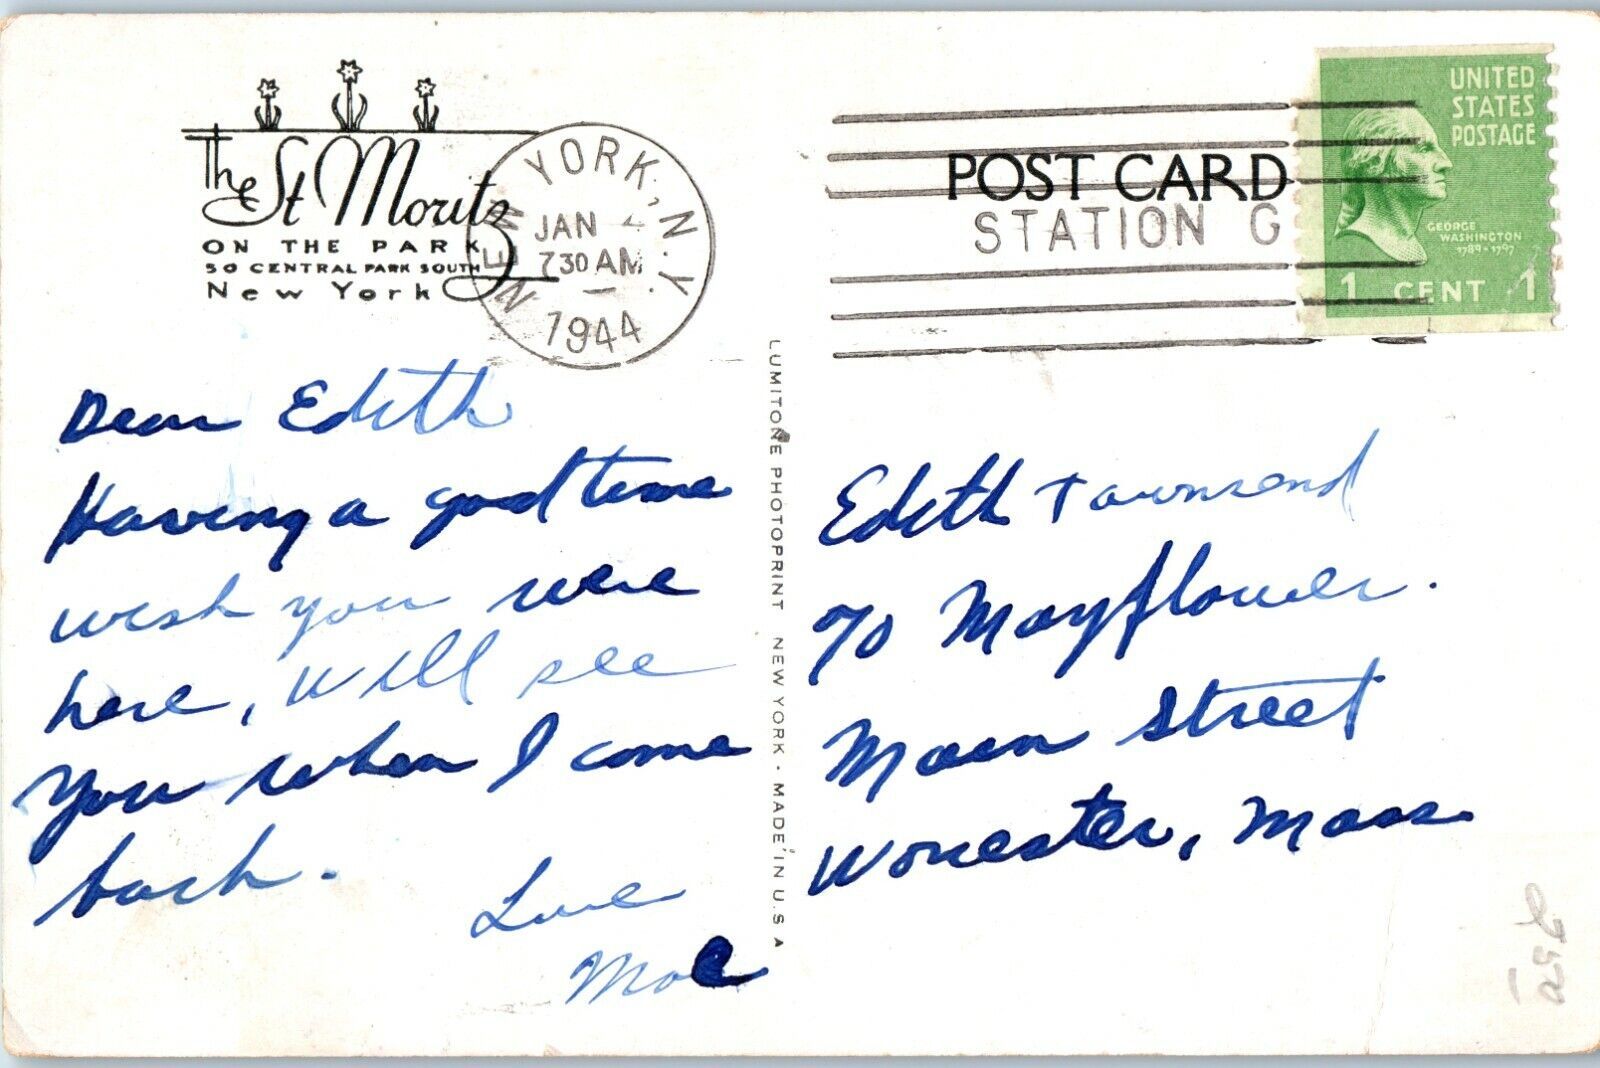 The St Moritz
ON THE PARK
50 CENTRAL PARK SOUTH
New York
NEW YORK, N.Y.
JAN
730 AM
1944
POST CARD
STATION G
UNITED
STATES
POSTAGE
GEORGE
WASHINGTON
1789-1797
1 CENT 1
Dear Edith
Having a good time
wish you were
here, will see
you when I come
back.
Love
Moe
LUMITONE PHOTOPRINT NEW YORK · MADE IN U.S.A
Edith Townsend
c/o Mayflower.
Main Street
Worcester, Mass.